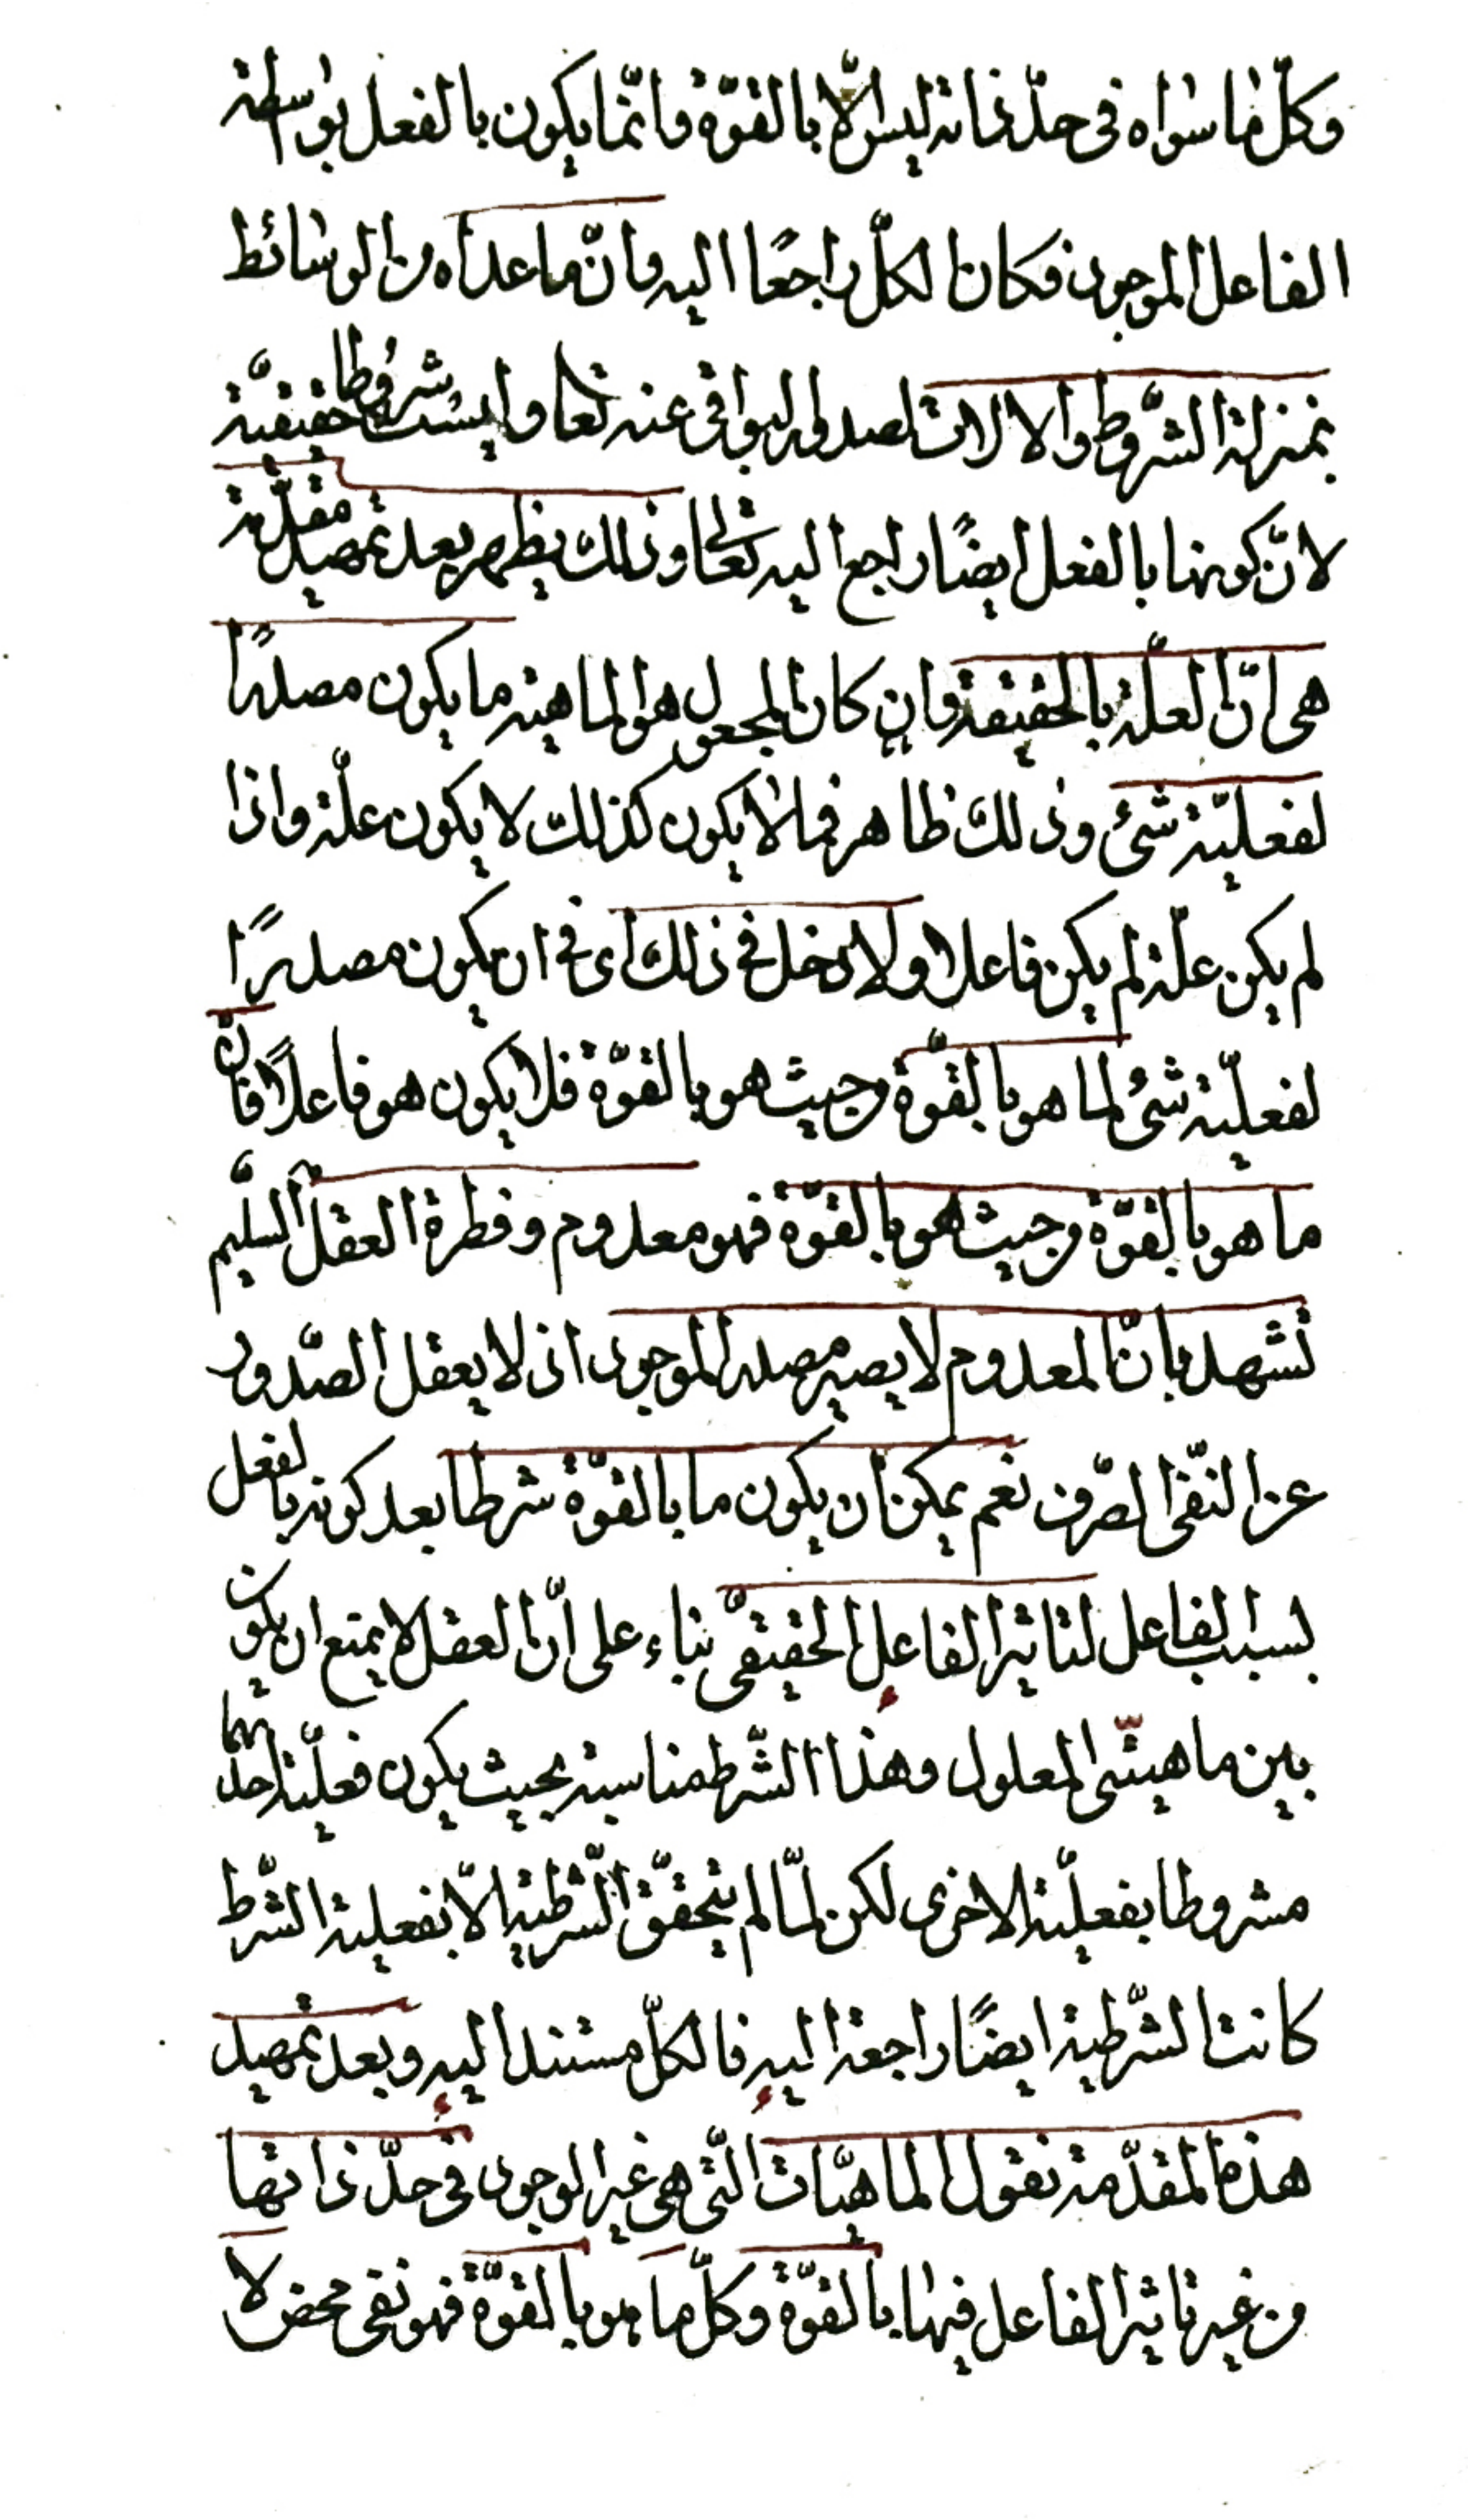 وكلّ ما سواه فى حدّ ذاته ليس الّا بالقوّة وانّما يكون بالفعل بواسطة
الفاعل الموجود فكان الكلّ راجعًا اليه وانّ ما عداه من الوسائط
بمنزلة الشّروط والالات لصدور البواقى عنه تعا وليست شروطا حقيقيّة
لانّ كونها بالفعل ايضًا راجع اليه تعالى وذلك يظهر بعد تمهيد مقدّمة
هى انّ العلّة بالحقيقة وان كان المجعول هو الماهية ما يكون مصدرًا
لفعليّة شئ وذلك ظاهر فما لا يكون كذلك لا يكون علّة واذا
لم يكن علّة لم يكن فاعلا ولا دخل فى ذلك اى فى ان يكون مصدرًا
لفعليّة شئ لما هو بالقوّة من حيث هو بالقوّة فلا يكون هو فاعلًا فانّ
ما هو بالقوّة من حيث هو بالقوّة فهو معدوم وفطرة العقل السّليم
تشهد بانّ المعدوم لا يصير مصدر الموجود اذ لا يعقل الصّدور
عن النّفى الصّرف نعم يمكن ان يكون ما بالقوّة شرطا بعد كونه بالفعل
بسبب الفاعل لتاثير الفاعل الحقيقىّ بناء على انّ العقل لا يمنع ان يكون
بين ماهيتى المعلول وهذا الشّرط مناسبة بحيث يكون فعليّة احدٰهما
مشروطا بفعليّة الاخرى لكن لمّا لم يتحقّق الشّرطية الّا بفعلية الشّرط
كانت الشّرطية ايضًا راجعة اليه فالكلّ مستند اليه وبعد تمهيد
هذه المقدّمة نقول الماهيّات الّتى هى غير الموجود فى حدّ ذاتها
من غير تاثير الفاعل فيها بالقوّة وكلّ ما هو بالقوّة فهو نفى محض لا